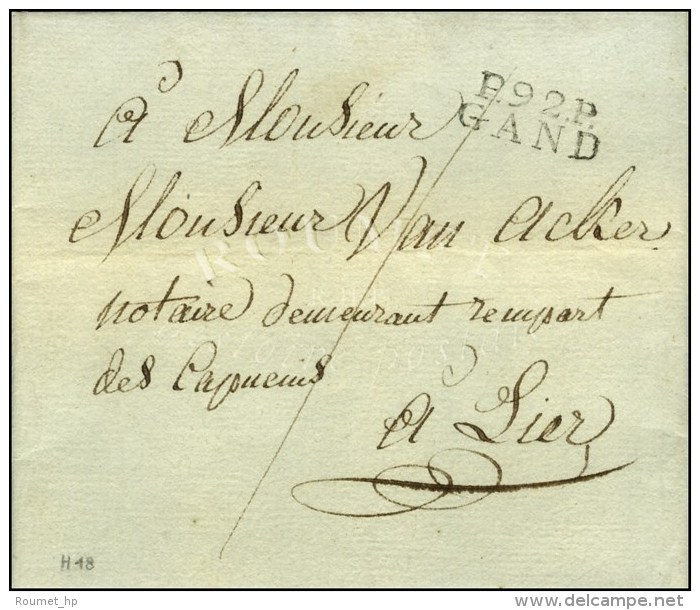 P.92.P.
GAND
à Monsieur
Monsieur Van Acker
notaire demeurant rempart
des Capucins
à Lier
H 18
Roumet_hp
delcampe.net